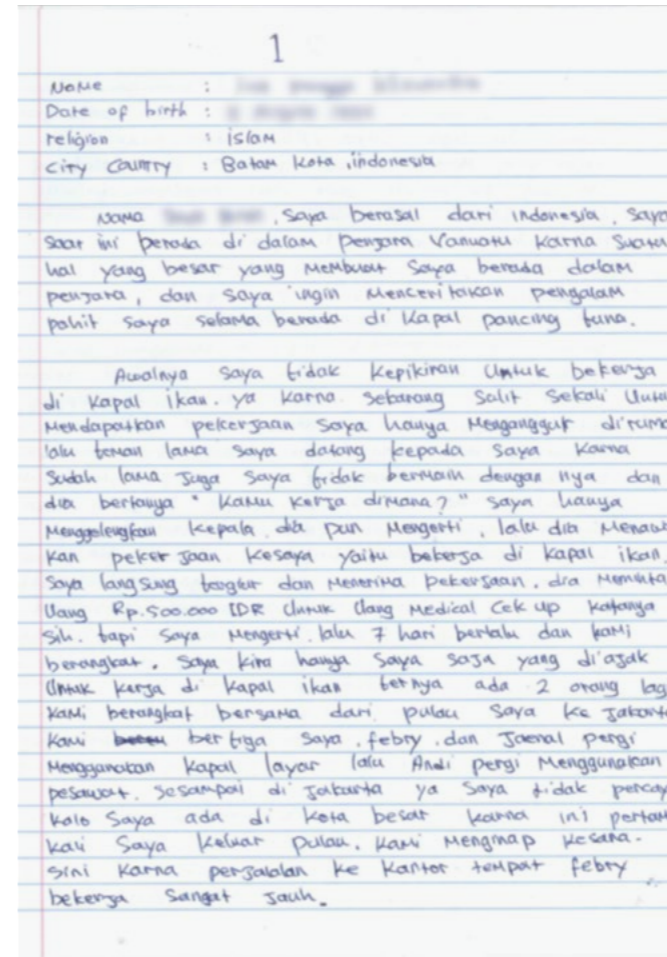 1
Name :
Date of birth :
religion : islam
City Country : Batam Kota, indonesia
Nama , saya berasal dari indonesia. saya
saat ini berada di dalam penjara Vanuatu karna suatu
hal yang besar yang membuat saya berada dalam
penjara, dan saya ingin menceritakan pengalam
pahit saya selama berada di kapal pancing tuna.
Awalnya saya tidak kepikiran untuk bekerja
di kapal ikan. ya karna sekarang salit sekali untu
mendapatkan pekerjaan saya hanya menganggur diruma
lalu teman lama saya datang kepada saya karna
sudah lama juga saya tidak bermain dengan nya dan
dia bertanya " kamu kerja dimana?" saya hanya
menggelengkan kepala. dia pun mengerti, lalu dia menawa
kan pekerjaan kesaya yaitu bekerja di kapal ikan.
saya langsung dan menerima pekerjaan. dia meminta
uang Rp.500.000 IDR untuk uang medical cek up katanya
sih. tapi saya mengerti. lalu 7 hari berlalu dan kami
berangkat. saya kira hanya saya saja yang di ajak
untuk kerja di kapal ikan ternya ada 2 orang lag
kami berangkat bersama dari pulau saya ke jakarta
kami ber tiga saya, febry, dan Jaenal pergi
menggunakan kapal layar lalu Andi pergi menggunakan
pesawat. sesampai di jakarta ya saya tidak percay
kalo saya ada di kota besar karna ini pertam
kali saya keluar pulau. kami menginap kesana.
sini karna perjalalan ke kantor tempat febry
bekerja sangat jauh.